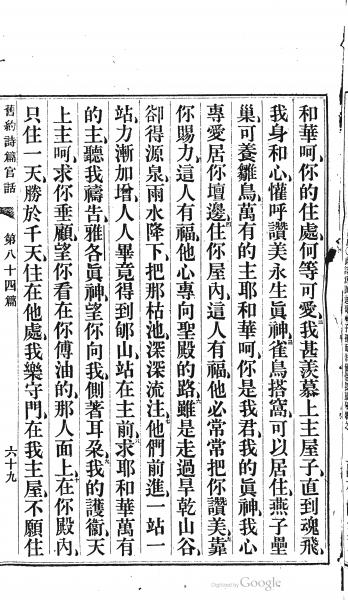 和華呵、你的住處何等可愛、我甚羨慕上主屋子、直到魂飛、
我身和心、懽呼讚美永生眞神、雀鳥搭窩可以居住、燕子壘
巢、可養雛鳥、萬有的主耶和華呵、你是我君我的眞神、我心
專愛居你壇邊、住你屋內、這人有福、他必常常把你讚美、靠
你賜力、這人有福、他心專向聖殿的路、雖是走過旱乾山谷、
卻得源泉、雨水降下、把那枯池深深流注、他們前進、一站一
站、力漸加增、人人畢竟得到郇山、站在主前、求耶和華萬有
的主、聽我禱告、雅各眞神、望你向我側著耳朶、我的護衞、天
上主呵、求你垂顧、望你看在你傅油的那人面上、在你殿內、
只住一天、勝於千天住在他處、我樂守門、在我主屋、不願住
舊約詩篇官話 第八十四篇 六十九
Digitized by Google